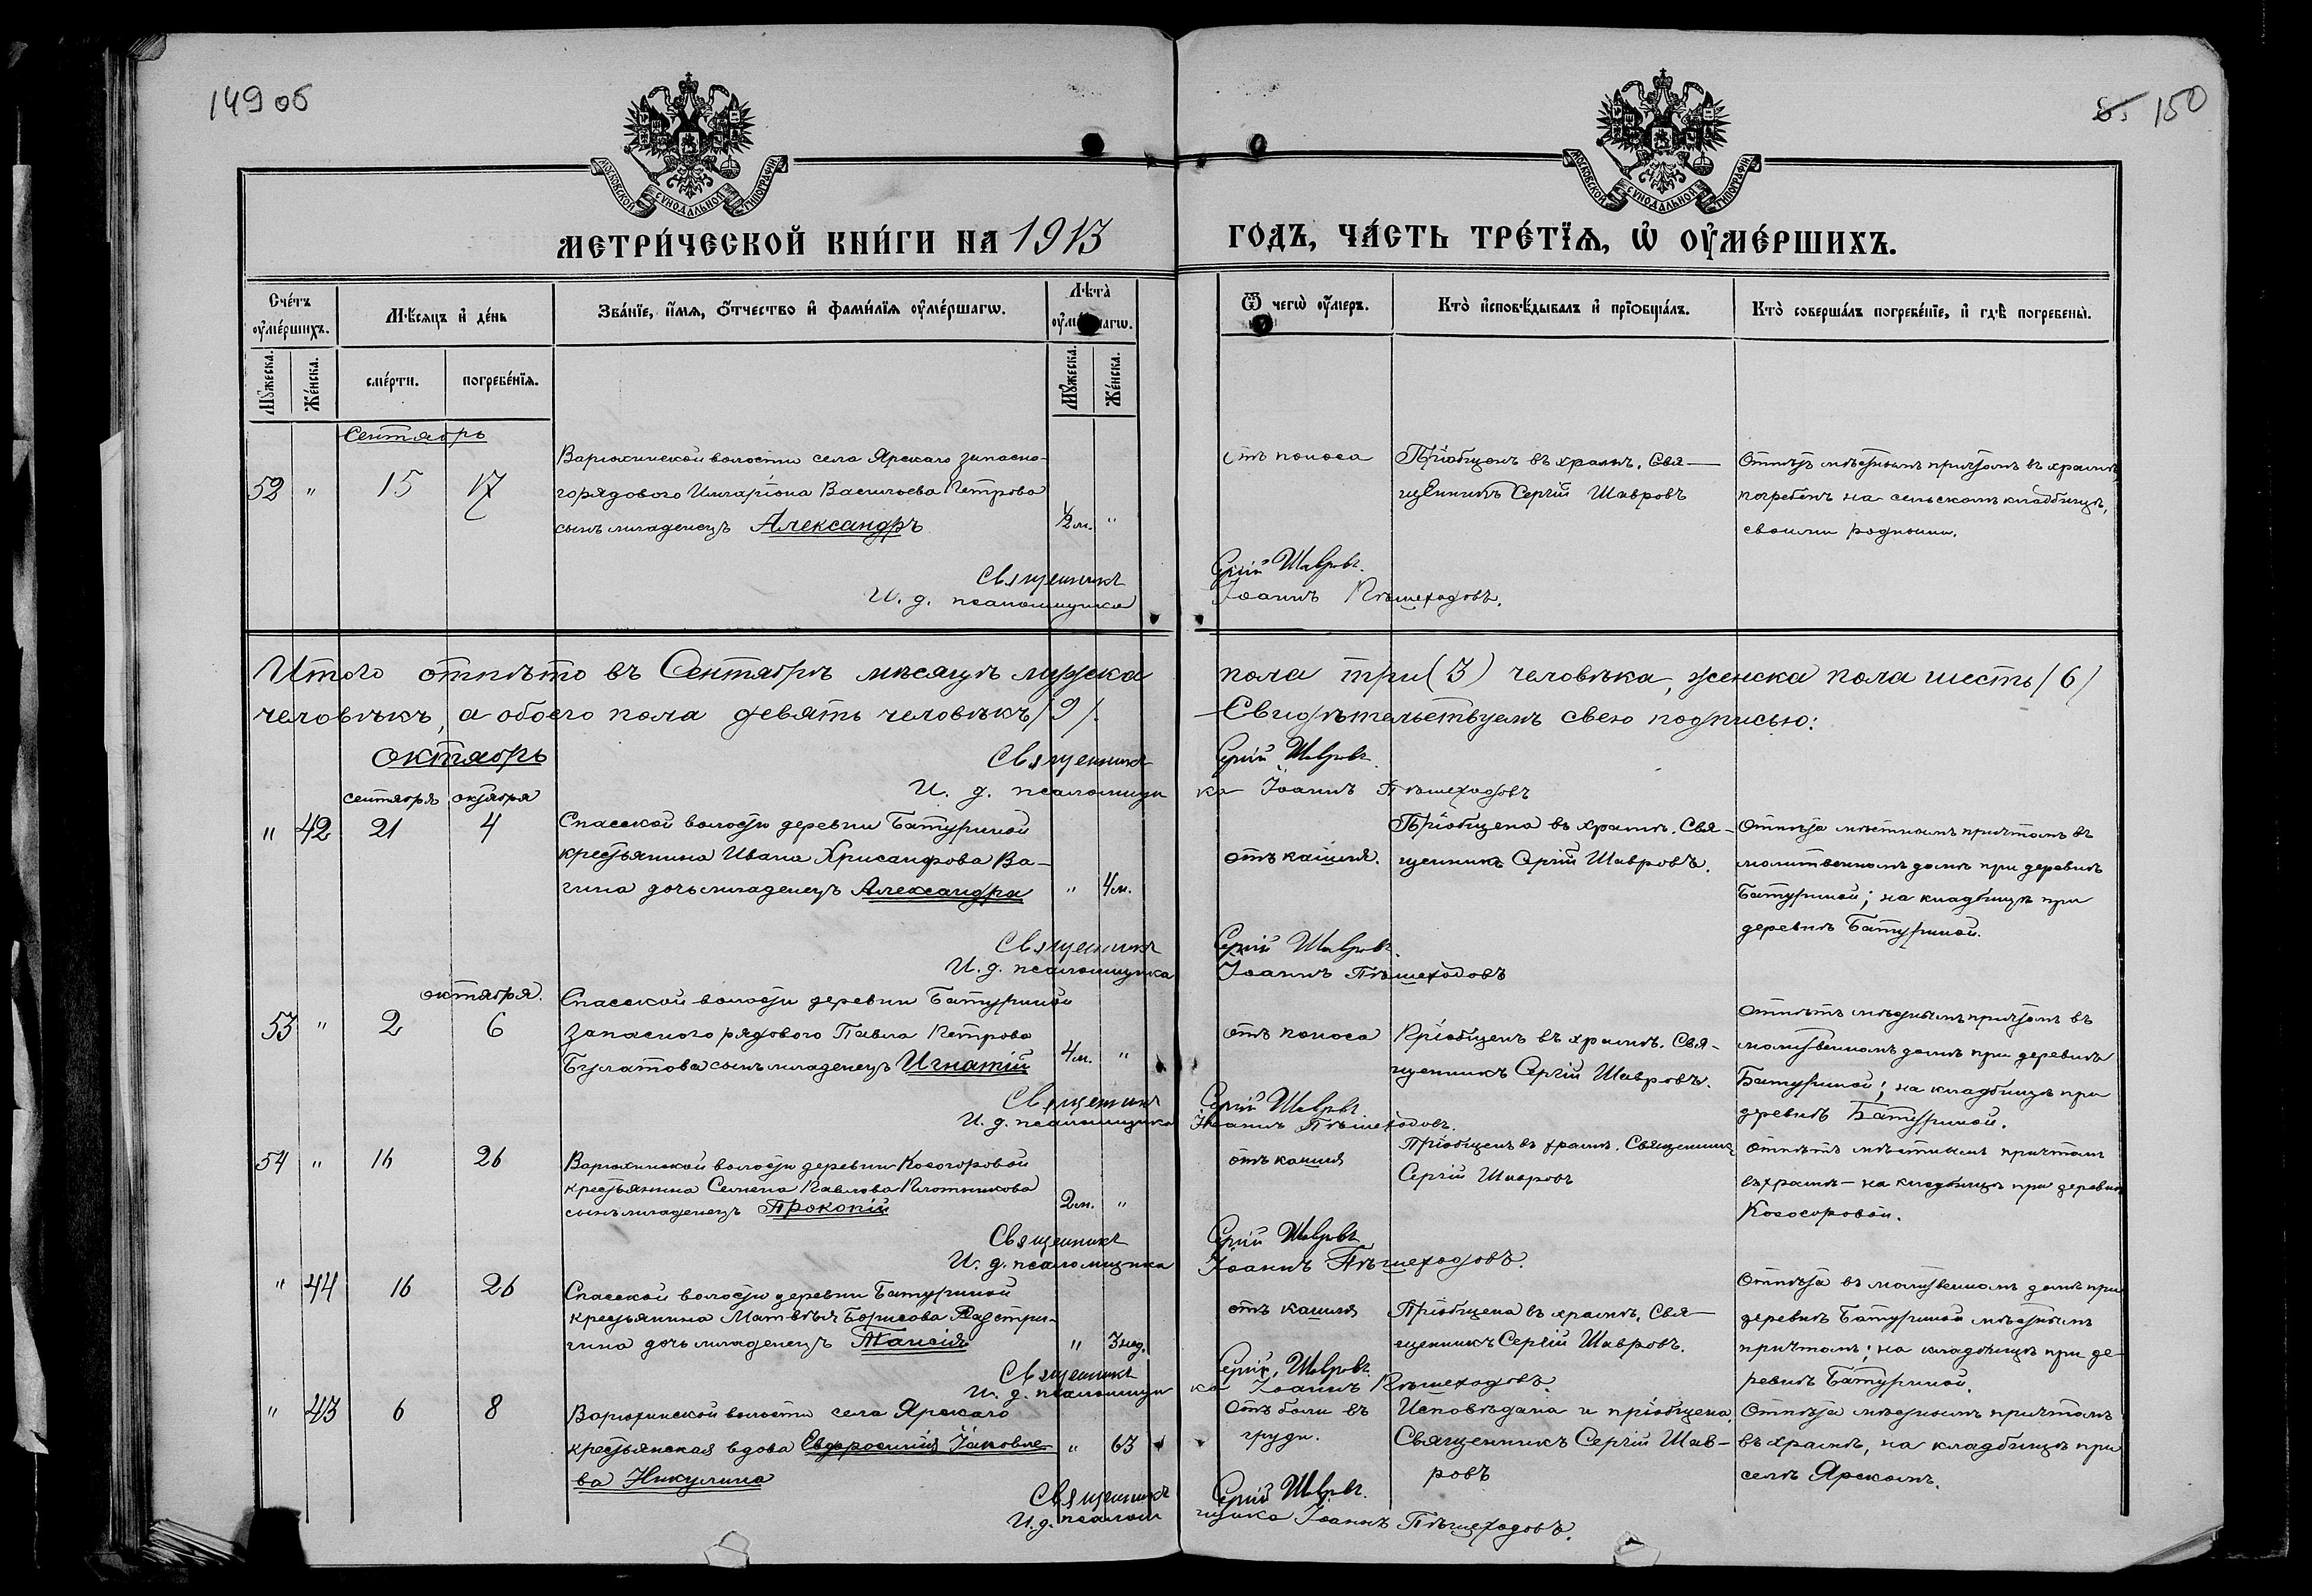 149 об
5. 150
МОСКОВСКОЙ СѴНОДАЛЬНОЙ ТИПОГРАФІИ
МОСКОВСКОЙ СѴНОДАЛЬНОЙ ТИПОГРАФІИ
МЕТРИ́ЧЕСКОЙ КНИ́ГИ НА 1913 ГОДЪ, ЧА́СТЬ ТРЕ́ТЇѦ, Ѡ҆ ОУ҆МЕ́РШИХЪ.
Сче́тъ оу҆ме́ршихъ.
Мꙋжеска.
Же́нска.
Мѣ́сяцъ и҆ де́нь
сме́рти.
погребе́нїѧ.
Зва́нїе, и҆́мѧ, ѻ҆́тчество и҆ фами́лїѧ оу҆ме́ршагѡ.
Лѣ́та̀ оу҆ме́ршагѡ.
Мꙋжеска.
Же́нска.
Ѿ чегѡ̀ оу҆́меръ.
Кто̀ и҆сповѣ́дывалъ и҆ прїѻбща́лъ.
Кто̀ соверша́лъ погребе́нїе, и҆ гдѣ̀ погребены̀.
Сентябрь
52 " 15 17
Варюхинской волости села Ярскаго запасно-
го рядового Иллариона Васильева Петрова
сынъ младенецъ Александръ
½ м. "
отъ поноса
Пріобщенъ въ храмѣ. Свя-
щенникъ Сергій Шавровъ
Отпѣтъ мѣстнымъ причтомъ въ храмѣ,
погребенъ на сельскомъ кладбищѣ,
своими родными.
Священникъ Сергій Шавровъ.
И. д. псаломщика Іоаннъ Пѣшеходовъ.
Итого отпѣто въ Сентябрѣ мѣсяцѣ мужска пола три (3) человѣка, женска пола шесть (6)
человѣкъ, а обоего пола девять человѣкъ (9). Свидѣтельствуемъ свею подписью:
Октябрь
Священникъ Сергій Шавровъ.
И. д. псаломщика Іоаннъ Пѣшеходовъ
сентября октября
" 42 21 4
Спасской волости деревни Батуриной
крестьянина Ивана Хрисанфова Ва-
гина дочь младенецъ Александра
" 4 м.
отъ кашля.
Пріобщена въ храмѣ. Свя-
щенникъ Сергій Шавровъ.
Отпѣта мѣстнымъ причтомъ въ
молитвенномъ домѣ при деревнѣ
Батуриной; на кладбищѣ при
деревнѣ Батуриной.
Священникъ Сергій Шавровъ.
И. д. псаломщика Іоаннъ Пѣшеходовъ
октября.
53 " 2 6
Спасской волости деревни Батуриной
запасного рядового Павла Петрова
Булатова сынъ младенецъ Игнатій
4 м. "
отъ поноса
Пріобщенъ въ храмѣ. Свя-
щенникъ Сергій Шавровъ.
Отпѣтъ мѣстнымъ причтомъ въ
молитвенномъ домѣ при деревнѣ
Батуриной; на кладбищѣ при
деревнѣ Батуриной.
Священникъ Сергій Шавровъ.
И. д. псаломщика Іоаннъ Пѣшеходовъ.
54 " 16 26
Варюхинской волости деревни Косогоровой
крестьянина Семена Павлова Плотникова
сынъ младенецъ Прокопій
2 м. "
отъ кашля
Пріобщенъ въ храмѣ. Священникъ
Сергій Шавровъ
Отпѣтъ мѣстнымъ причтомъ
въ храмѣ — на кладбищѣ при деревнѣ
Косогоровой.
Священникъ Сергій Шавровъ
И. д. псаломщика Іоаннъ Пѣшеходовъ.
" 44 16 26
Спасской волости деревни Батуриной
крестьянина Матвѣя Борисова Разстри-
гина дочь младенецъ Таисія
" 3 нед.
отъ кашля
Пріобщена въ храмѣ. Свя-
щенникъ Сергій Шавровъ.
Отпѣта въ молитвенномъ домѣ при
деревнѣ Батуриной мѣстнымъ
причтомъ; на кладбищѣ при де-
ревнѣ Батуриной.
Священникъ Сергій Шавровъ.
И. д. псаломщика Іоаннъ Пѣшеходовъ.
" 43 6 8
Варюхинской волости села Ярскаго
крестьянская вдова Евфросинія Іаковле-
ва Никулина
" 63
Отъ боли въ
груди.
Исповѣдана и пріобщена.
Священникъ Сергій Шав-
ровъ
Отпѣта мѣстнымъ причтомъ
въ храмѣ, на кладбищѣ при
селѣ Ярскомъ.
Священникъ Сергій Шавровъ.
И. д. псаломщика Іоаннъ Пѣшеходовъ.